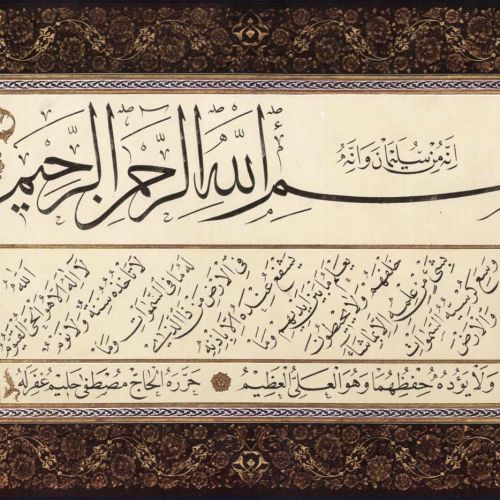 انه من سليمان وانه
بسم الله الرحمن الرحيم
الله لا اله الا هو الحي القيوم
لا تأخذه سنة ولا نوم
له ما في السموات وما
في الارض من ذا الذي
يشفع عنده الا باذنه
يعلم ما بين ايديهم وما
خلفهم ولا يحيطون
بشيء من علمه الا بما شاء
وسع كرسيه السموات
والارض
ولا يؤده حفظهما وهو العلي العظيم حرره الحاج مصطفى حليم غفر له